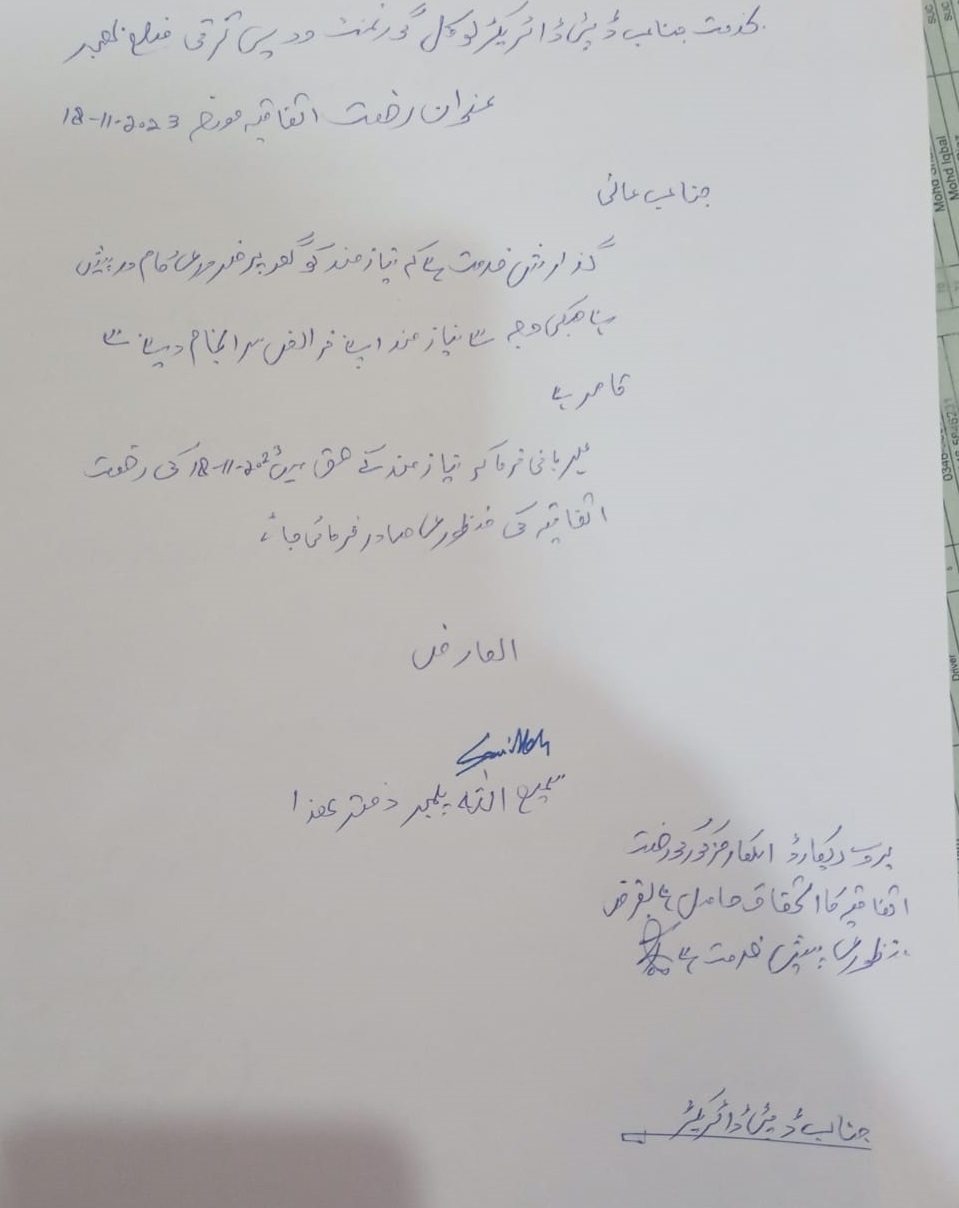 بخدمت جناب ڈپٹی ڈائریکٹر لوکل گورنمنٹ ودیہی ترقی ضلع بھمبر
عنوان رخصت اتفاقیہ مورخہ 18-11-2023
جناب عالی
گذارش خدمت ہے کہ نیازمند کو گھر پر ضروری کام درپیش
ہے جسکی وجہ سے نیازمند اپنے فرائض سرانجام دینے سے
قاصر ہے
مہربانی فرما کر نیازمند کے حق میں 18-11-2023 کی رخصت
اتفاقیہ کی منظوری صادر فرمائی جائے
العارض
Samiullah
سمیع اللہ پلمبر دفتر ھذا
بروئے ریکارڈ اہلکار مذکور کو رخصت
اتفاقیہ کا استحقاق حاصل ہے بغرض
منظوری پیش خدمت ہے
جناب ڈپٹی ڈائریکٹر
Mohd Iqbal
Driver